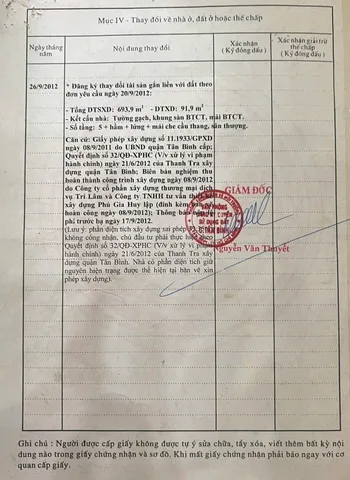 Mục IV - Thay đổi về nhà ở, đất ở hoặc thế chấp
Ngày tháng năm
Nội dung thay đổi
Xác nhận ( Ký đóng dấu )
Xác nhận giải trừ thế chấp ( Ký đóng dấu )
26/9/2012
* Đăng ký thay đổi tài sản gắn liền với đất theo
đơn yêu cầu ngày 20/9/2012:
- Tổng DTSXD: 693,9 m² - DTXD: 91,9 m²
- Kết cấu nhà: Tường gạch, khung sàn BTCT, mái BTCT.
- Số tầng: 5 + hầm + lửng + mái che cầu thang, sân thượng.
Căn cứ: Giấy phép xây dựng số 11.1933/GPXD
ngày 08/9/2011 do UBND quận Tân Bình cấp;
Quyết định số 32/QD-XPHC (V/v xử lý vi phạm
hành chính) ngày 21/6/2012 của Thanh Tra xây
dựng quận Tân Bình; Biên bản nghiệm thu
hoàn thành công trình xây dựng ngày 08/9/2012
do Công ty cổ phần xây dựng thương mại dịch
vụ Trí Lâm và Công ty TNHH tư vấn thiết
xây dựng Phú Gia Huy lập (đính kèm
hoàn công ngày 08/9/2012); Thông báo
phí trước bạ ngày 17/9/2012.
(Lưu ý: phần diện tích xây dựng sai phép
không công nhận, chủ đầu tư phải thực hiện theo
Quyết định số 32/QD-XPHC (V/v xử lý vi phạm
hành chính) ngày 21/6/2012 của Thanh Tra xây
dựng quận Tân Bình. Nhà có phần diện tích giữ
nguyên hiện trạng được thể hiện tại bản vẽ xin
phép xây dựng).
GIÁM ĐỐC
VĂN PHÒNG
ĐĂNG KÝ QUYỀN
SỬ DỤNG ĐẤT
Q. TÂN BÌNH
Nguyễn Văn Thuyết
Ghi chú : Người được cấp giấy không được tự ý sửa chữa, tẩy xóa, viết thêm bất kỳ nội
dung nào trong giấy chứng nhận và sơ đồ. Khi mất giấy chứng nhận phải báo ngay với cơ
quan cấp giấy.